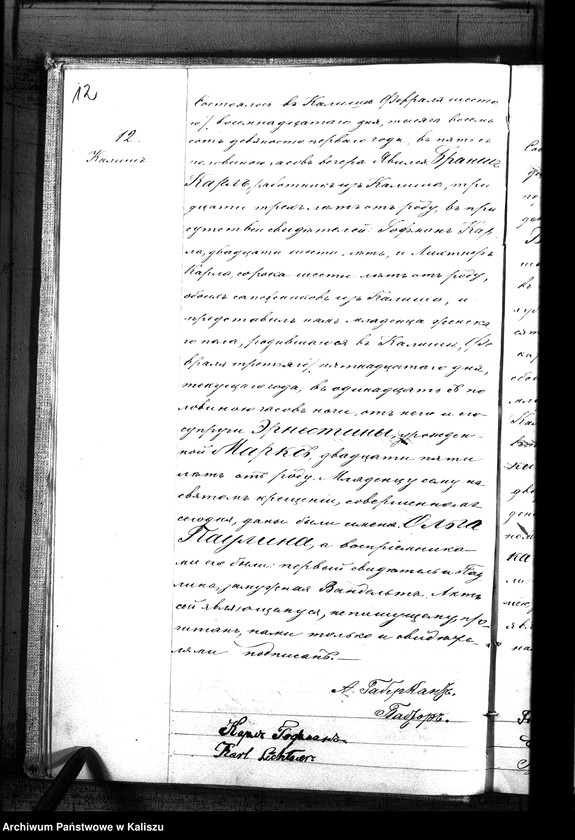 12
12.
Калишъ
Состоялось въ Калишѣ Февраля шесто
го/ восемнадцатаго дня, тысяча восемь
сотъ девяносто перваго года, въ пять съ
половиною часовъ вечера. Явился
Карлъ, работникъ изъ Калиша, три
дцати трехъ лѣтъ отъ роду, въ при
сутствіи свидѣтелей: Гофманъ Кар
ла, двадцати шести лѣтъ, и Лихтнеръ
Карла, сорока шести лѣтъ отъ роду,
обоихъ сапожниковъ изъ Калиша, и
представилъ намъ младенца женска
го пола, родившагося въ Калишѣ, Фе
враля третьяго/ пятнадцатаго дня,
текущаго года, въ одинадцать съ по
ловиною часовъ ночи, отъ него и его
супруги Эрнестины, урожден-
ной двадцати пяти
лѣтъ отъ роду. Младенцу сему на
святомъ крещеніи, совершенномъ
сегодня, даны были имена Ольга
Паулина, а воспріемника-
ми его были: первый свидѣтель и Пау
лина, замужная Вандельтъ. Актъ
сей являющемуся, неписущему, про-
читанъ, нами только и свидѣте-
лями подписанъ.—
А. Габерканъ.
Пасторъ.
Карлъ Гофманъ.
Karl Lichtner
Archiwum Państwowe w Kaliszu